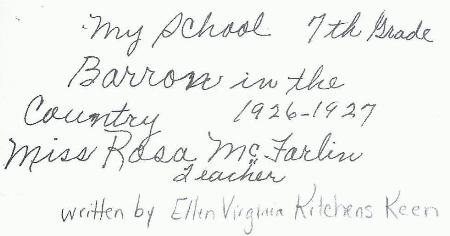 My School 7th Grade
Barron in the
Country 1926-1927
Miss Rosa McFarlin
Teacher
written by Ellen Virginia Kitchens Keen